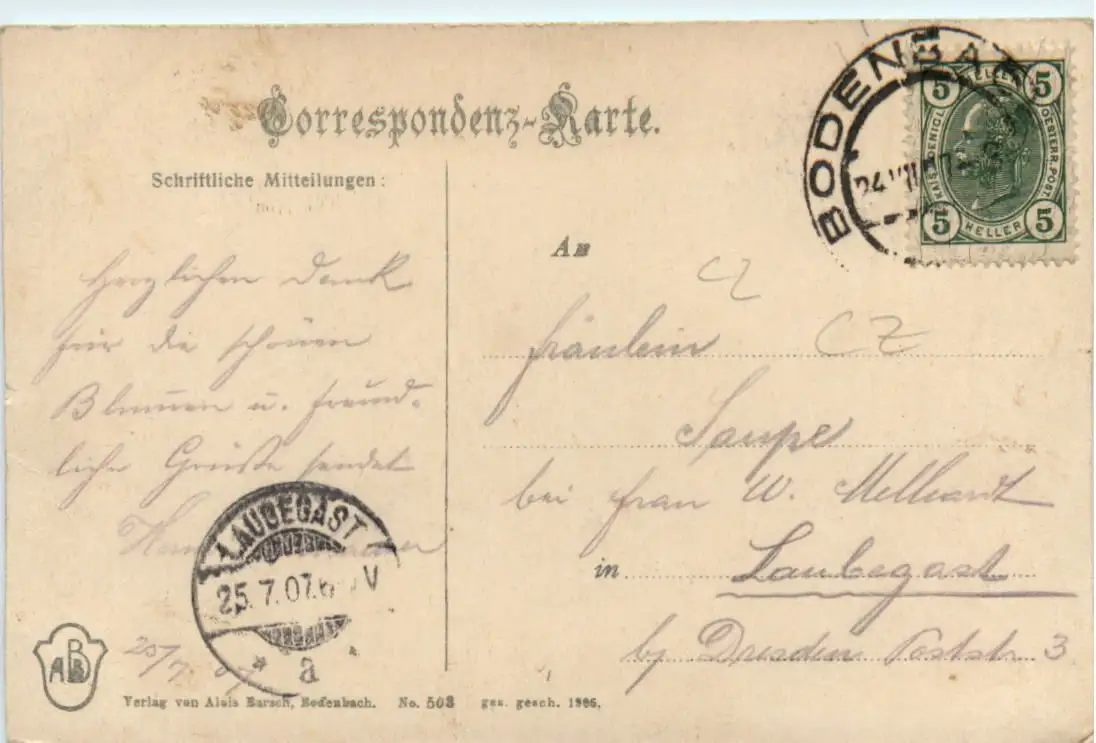 Correspondenz-Karte.
Schriftliche Mitteilungen:
Herzlichen Dank
für die schönen
Blumen u. freund-
liche Grüsse sendet
25/7 07
BODENBA
24 VII 07
5 HELLER 5
OESTERR. POST.
5 HELLER 5
An
CZ
CZ
Fräulein
Saupe
bei Frau W. Melhardt
in Laubegast
b/ Dresden Poststr 3
LAUBEGAST
25.7.07.6 V
* a *
ABB
Verlag von Alois Barsch, Bodenbach. No. 503 ges. gesch. 1906.